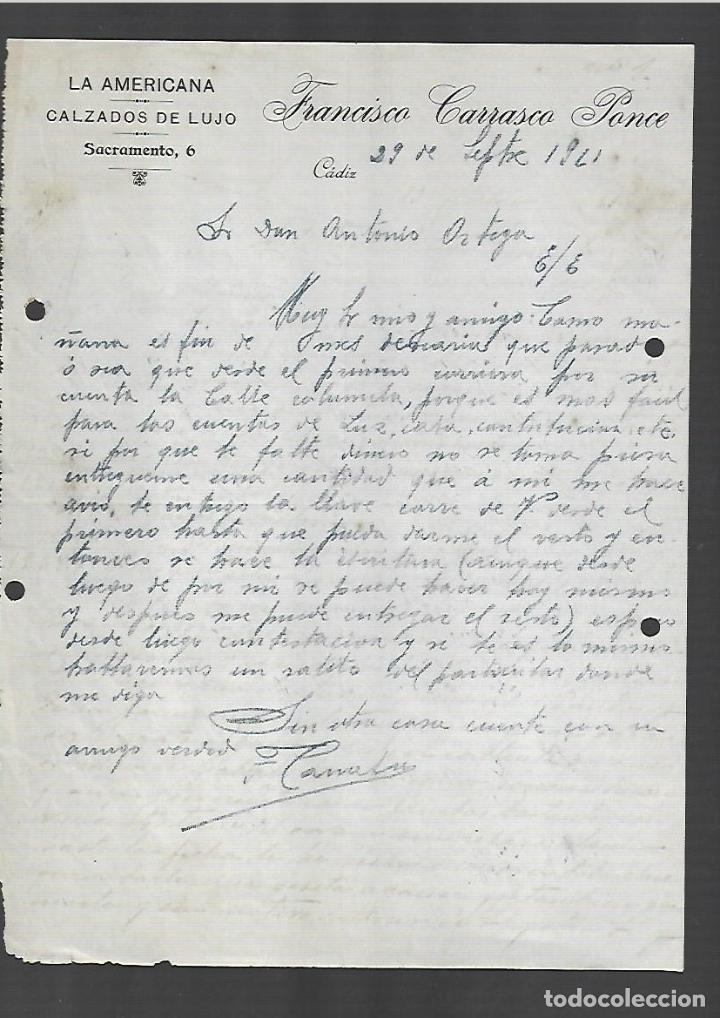 LA AMERICANA
CALZADOS DE LUJO
Sacramento, 6
Francisco Carrasco Ponce
Cádiz 29 de Septre 19
Sr Don Antonio Ortega
E/E
Muy Sr mio y amigo. Como ma-
ñana es fin de mes desearia que
ó sea que desde el primero corriera por su
cuenta la Calle columela, porque es mas facil
para las cuentas de Luz, casa, contribucion, etc.
si por que te falte dinero no se toma
entregueme una cantidad que á mi me hace
avio, te entrego la llave corre de V. desde el
primero hasta que pueda darme el resto y en-
tonces se hace la escritura (aunque desde
luego de por mi se puede hacer hoy mismo
y despues me puede entregar el resto) espero
desde luego contestacion y si te es lo mismo
hablaremos un ratito del particular donde
me diga
Sin otra cosa cuente con un
amigo verdad
F Carrasco
todocoleccion